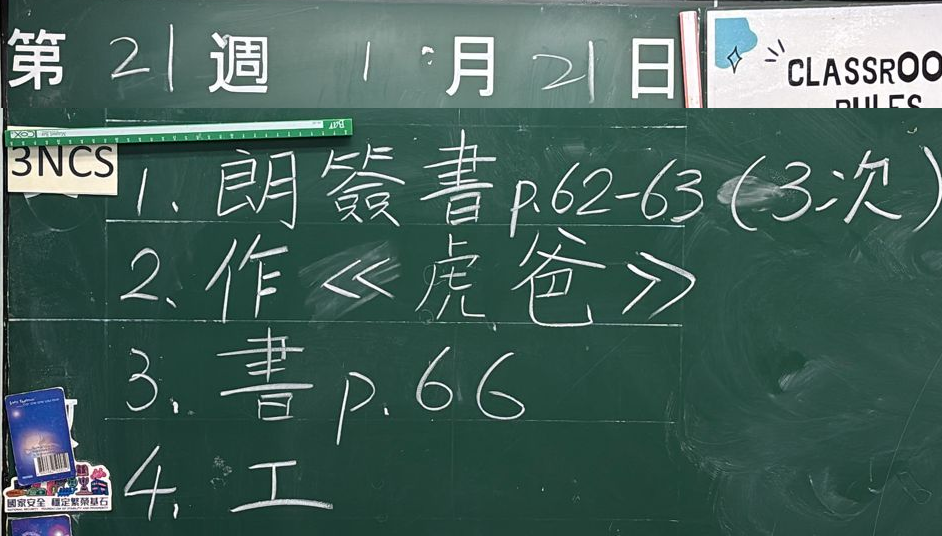 第 21 週 1 月 21 日
CLASSROO
RULES
3NCS
1. 朗簽書 p.62-63 (3次)
2. 作 << 虎爸 >>
3. 書 p.66
4. 工
國家安全 穩定繁榮基石